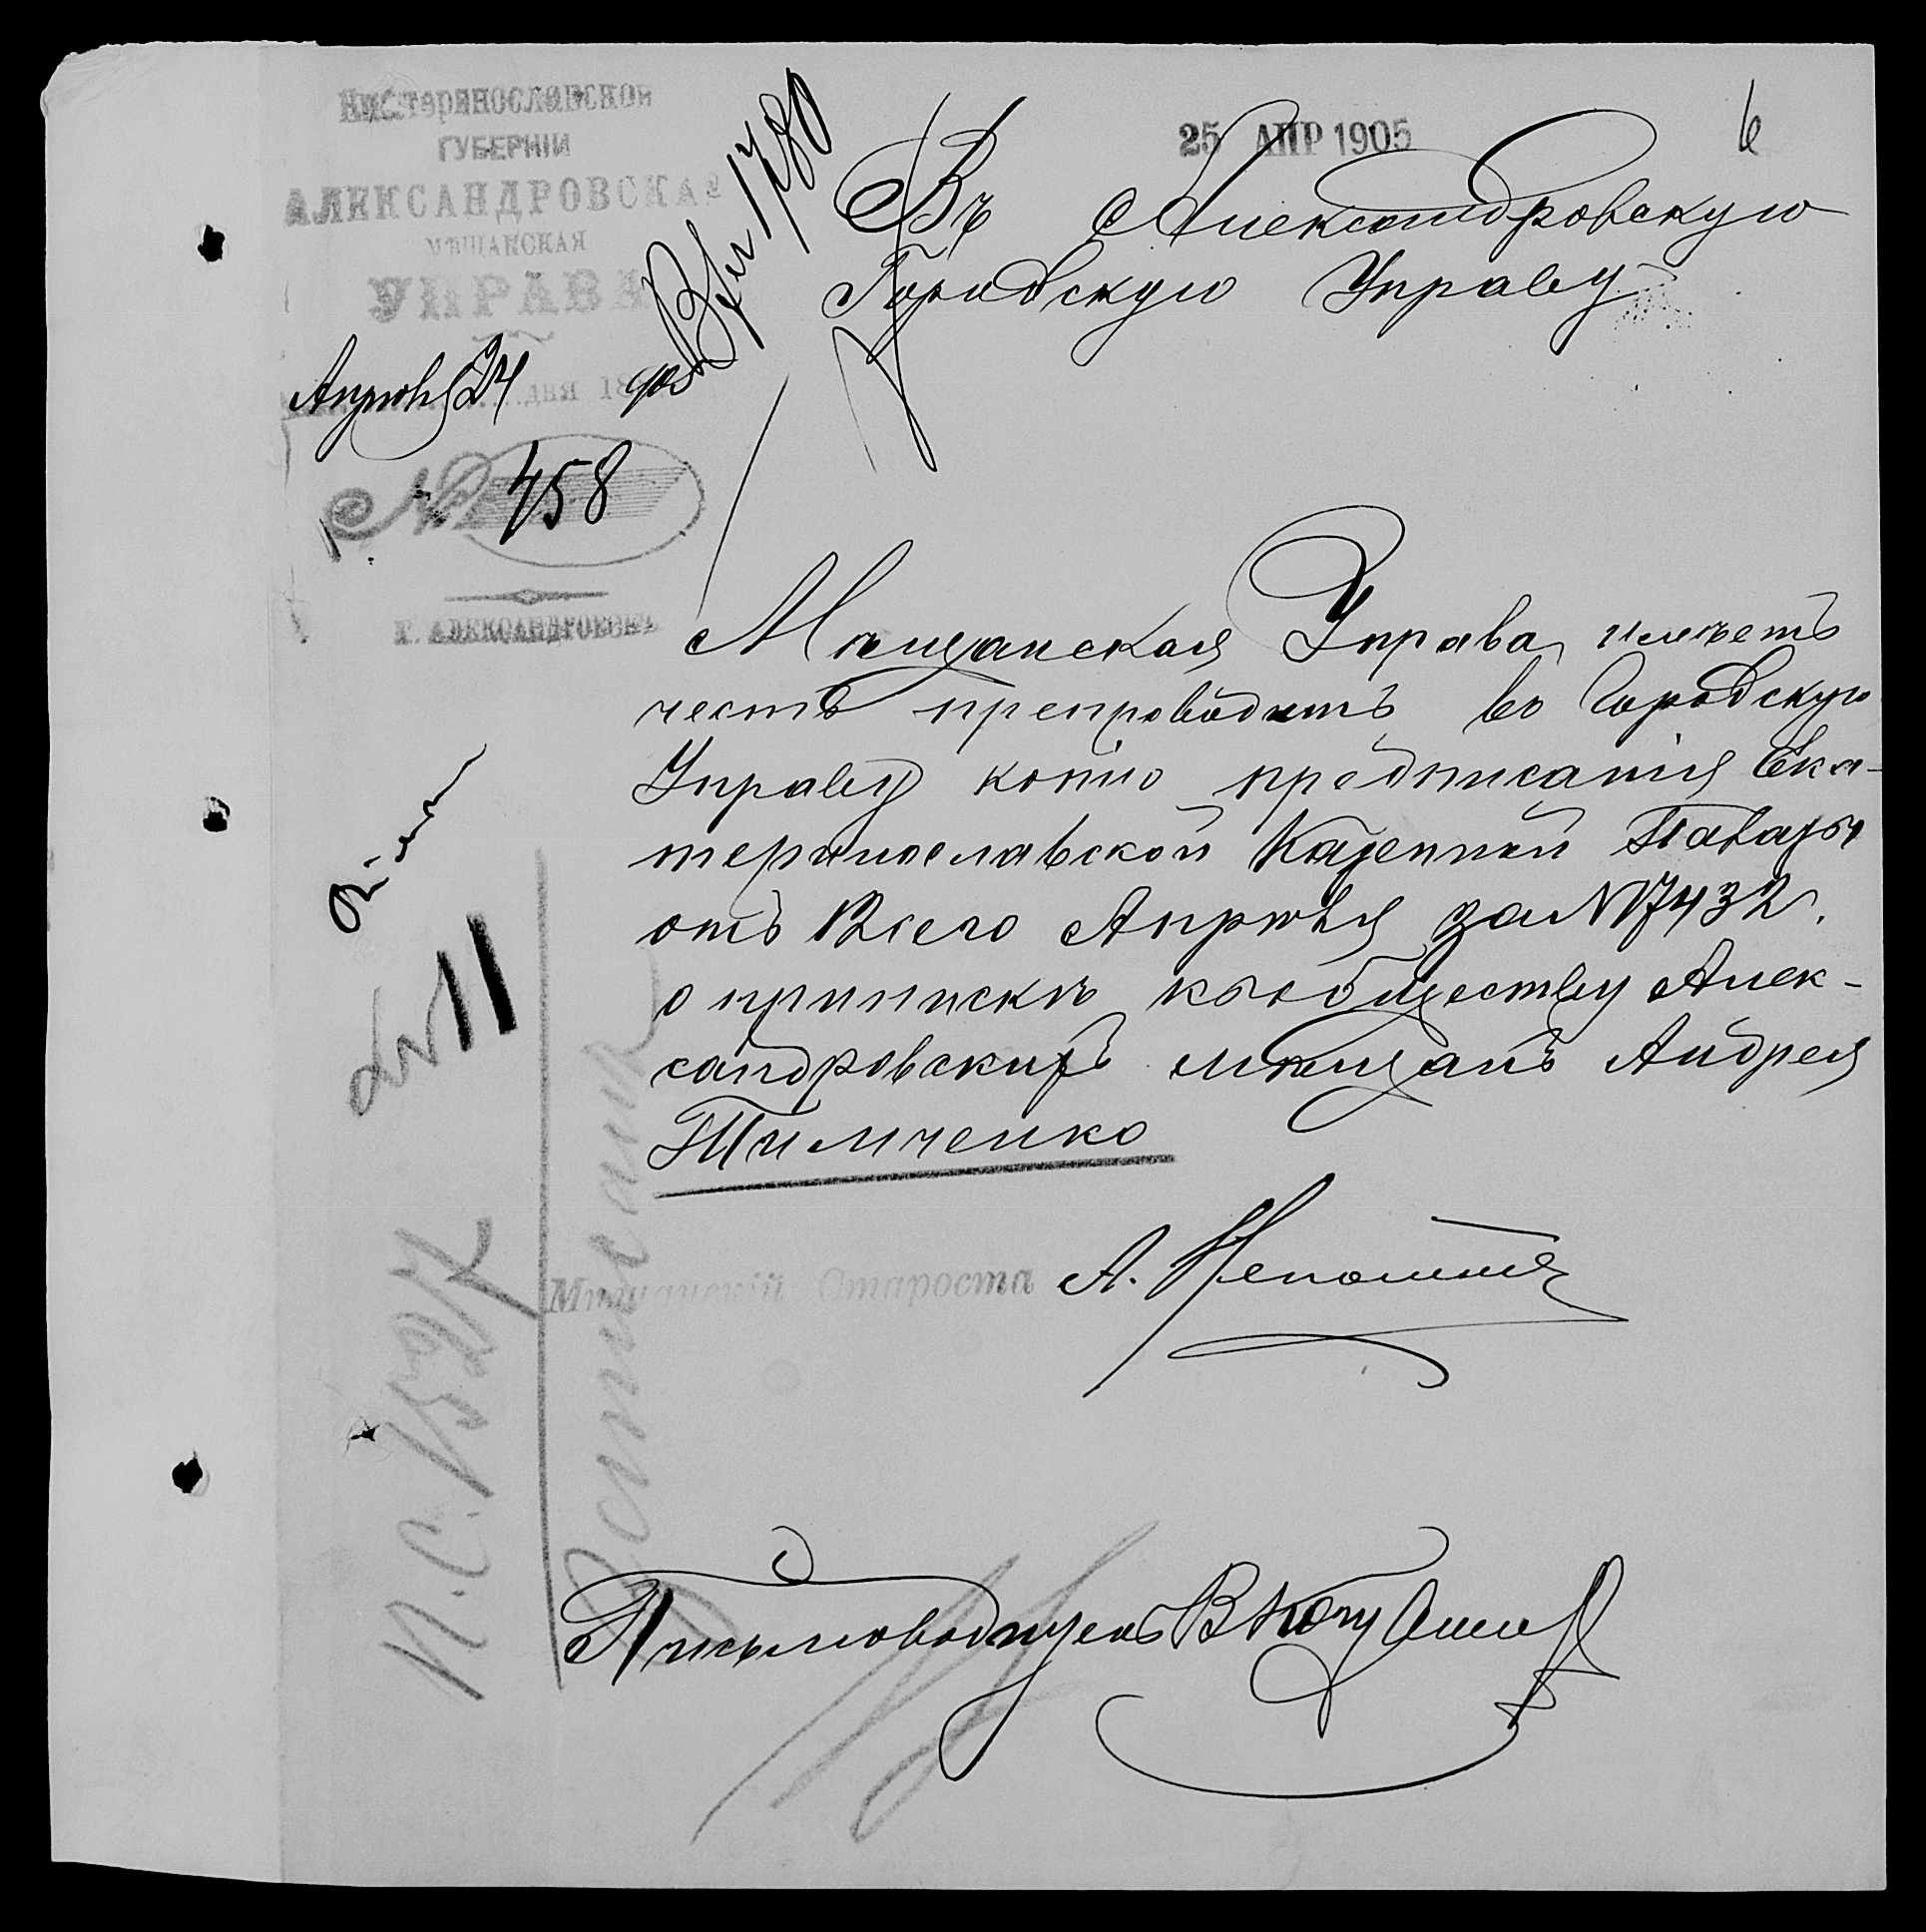 Екатеринославской
ГУБЕРНІИ
АЛЕКСАНДРОВСКАЯ
МѢЩАНСКАЯ
УПРАВА
Апрѣля 24 дня 1905
№ 458
Г. АЛЕКСАНДРОВСКЪ
Вх. 1780
25 АПР 1905
6
Въ Александровскую
Городскую Управу
Мѣщанская Управа имѣетъ
честь препроводить во Городскую
Управу копію предписанія Ека-
теринославской Казенной Палаты
отъ 12 сего Апрѣля за № 7432
о припискѣ къ обществу Алек-
сандровскихъ мѣщанъ Андрея
Тимченко
Мѣщанскій Староста А.
Письмоводитель В
11